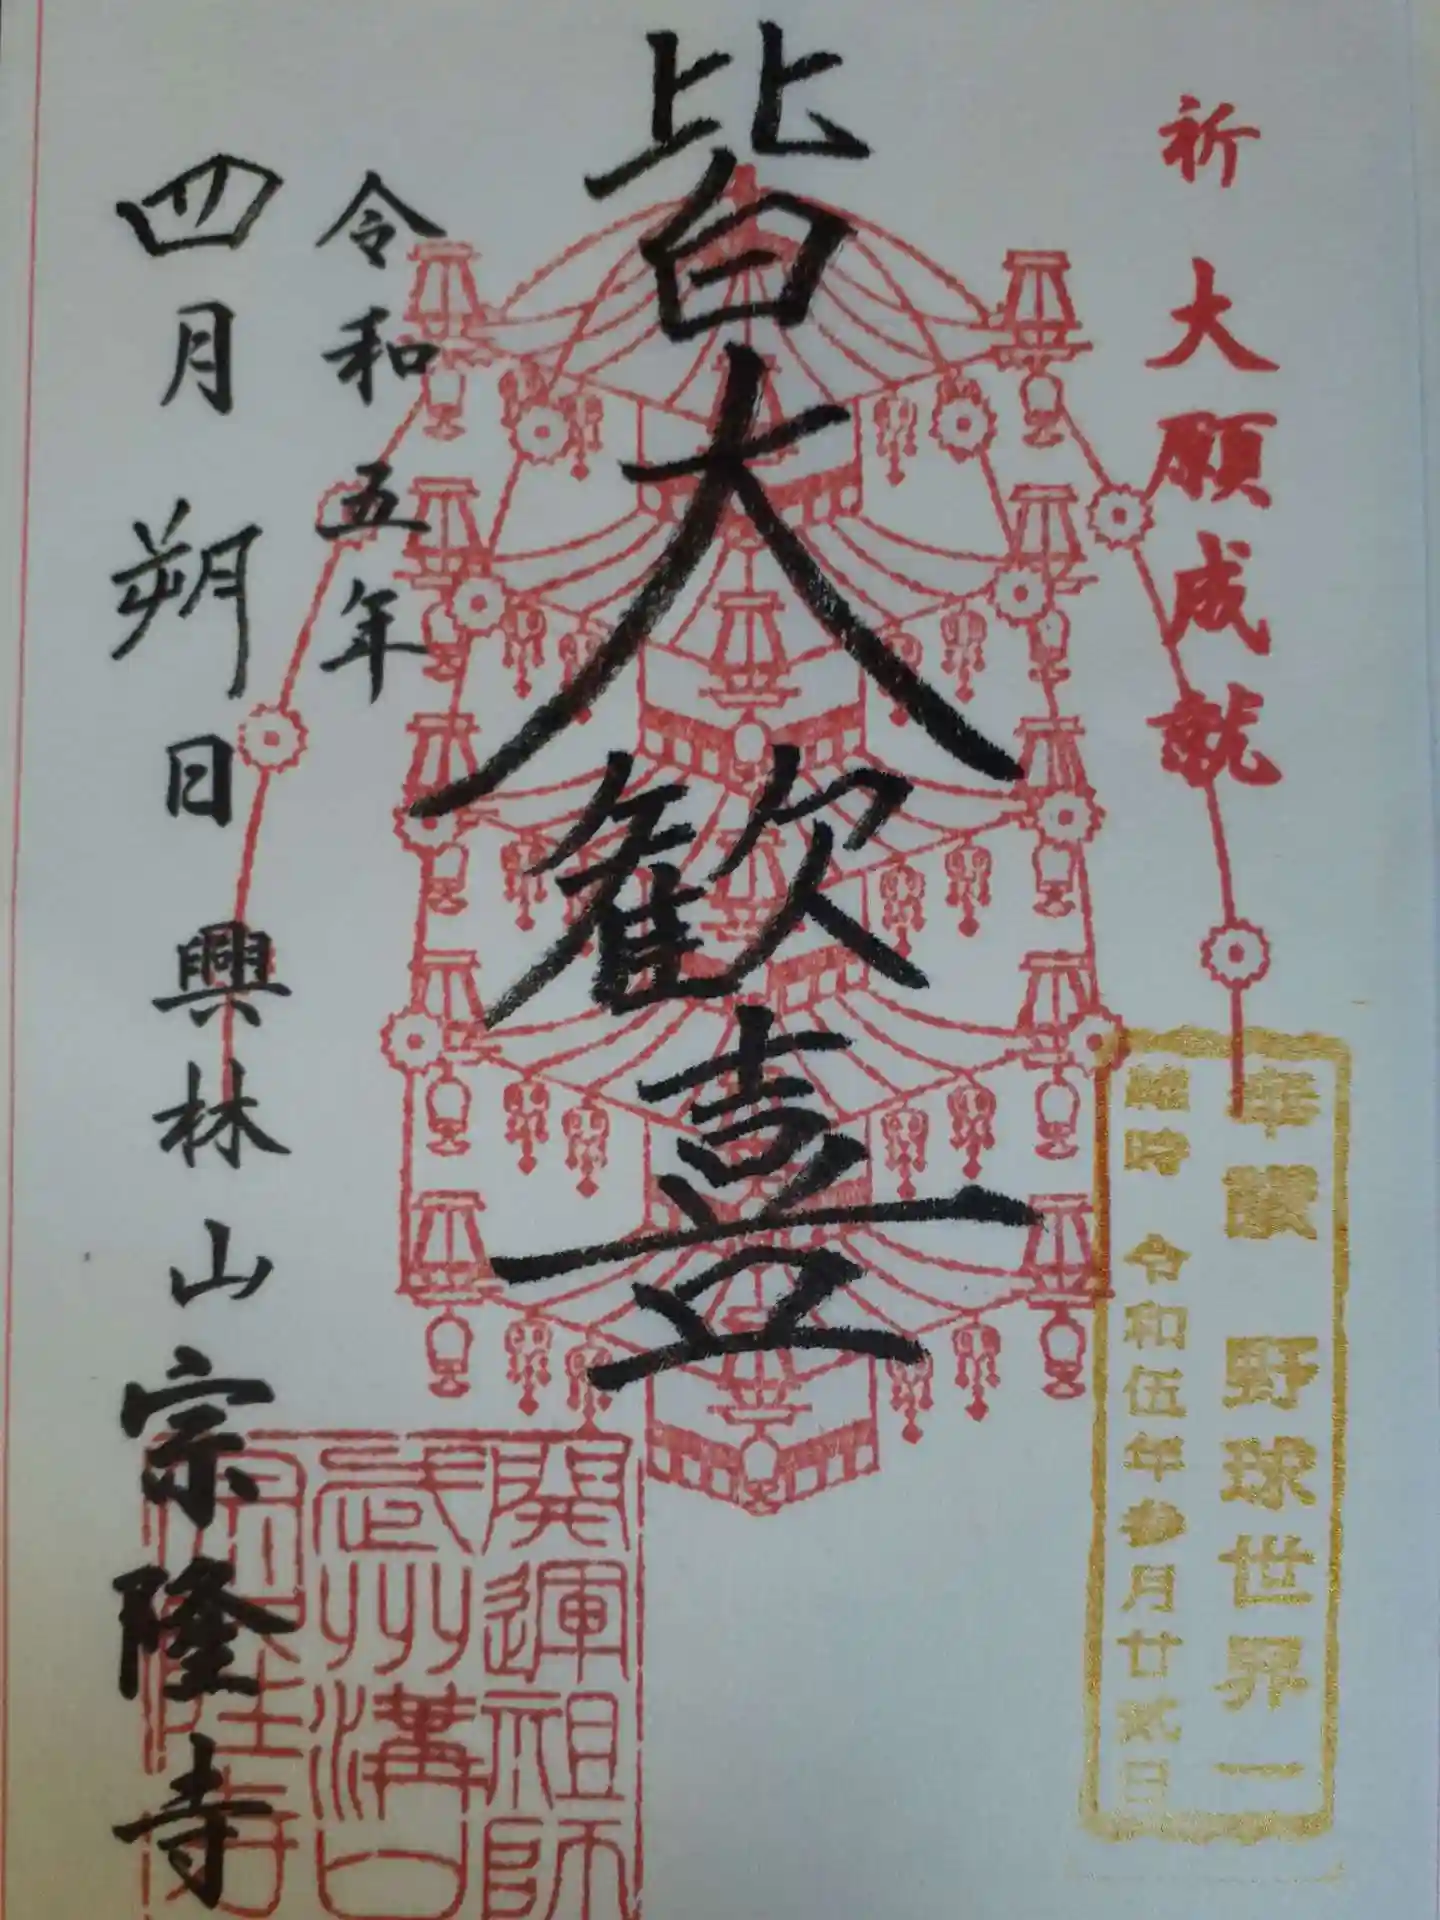 祈 大願成就
奉讃 野球世界一
維時 令和伍年参月廿弐日
皆大歓喜
令和五年
四月朔日 興林山 宗隆寺
開運祖師
武州溝口
宗隆寺